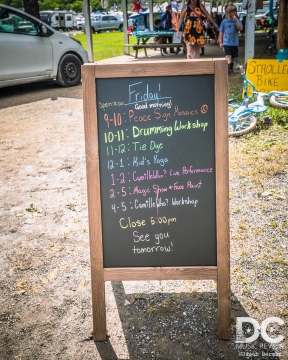 Friday!
Good morning!
9-10: Peace Sign Mosaics
10-11: Drumming Workshop
11-12: Tie Dye
12-1: Kid's Yoga
1-2: CamilleWho? Live Performance
2-5: Magic Show & Face Paint
4-5: CamilleWho? Workshop
Close 5:00pm
See you
tomorrow!
STROLLER
BIKE
DC
MUSIC REVIEW